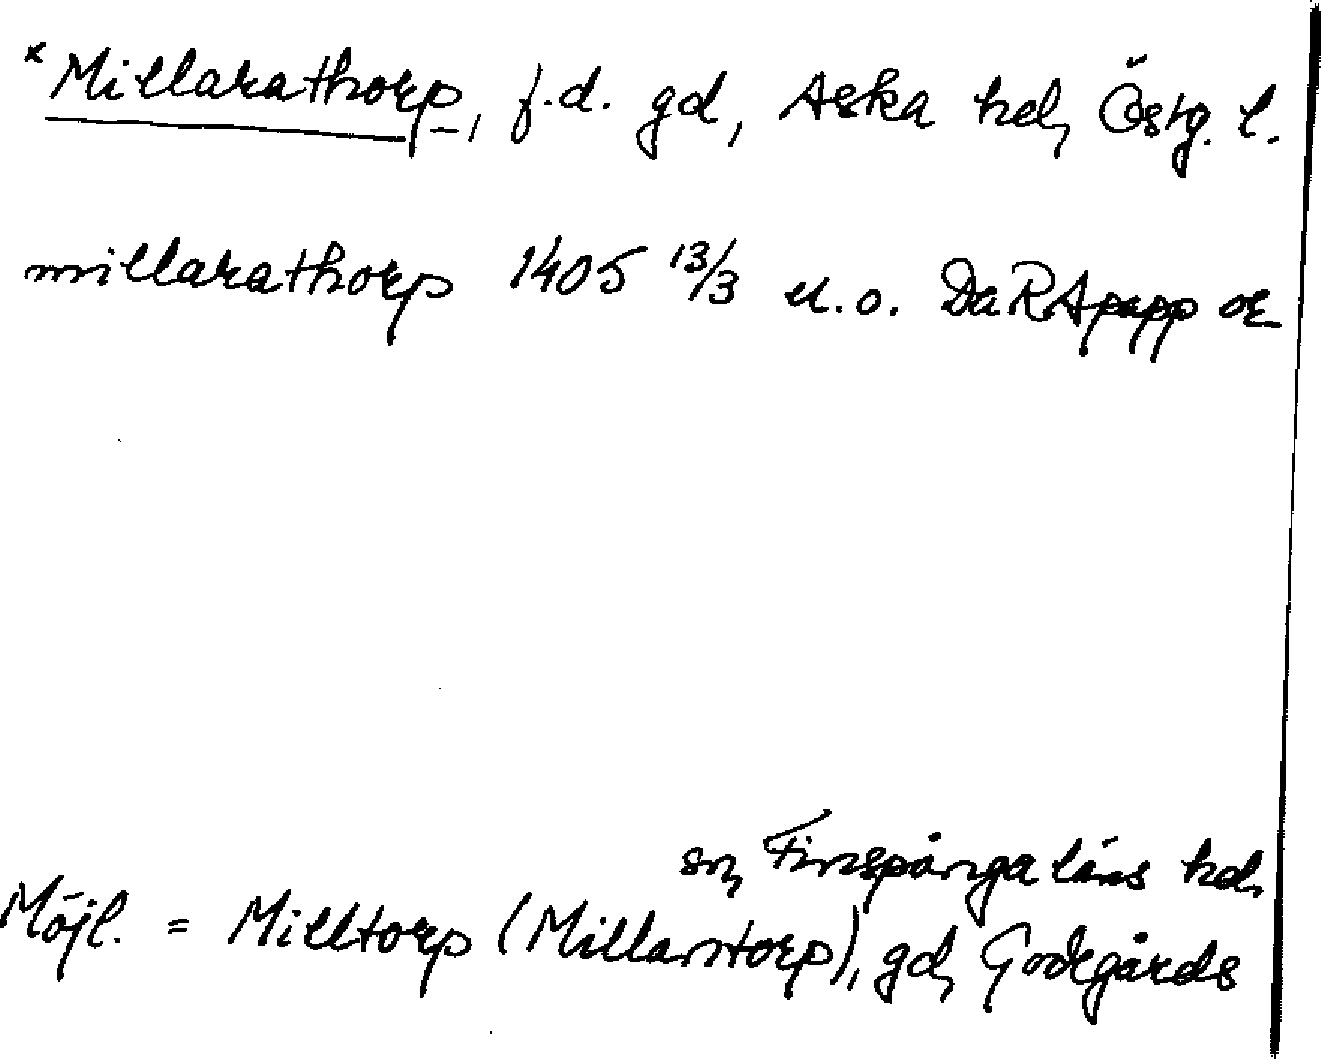 × Millarathorp, f.d. gd, Aska hd, Östg. l.
millarathorp 1405 13/3 u.o. Da RApapp or
sn, Finspånga läns hd.
Möjl. = Milltorp (Millartorp), gd, Godegårds